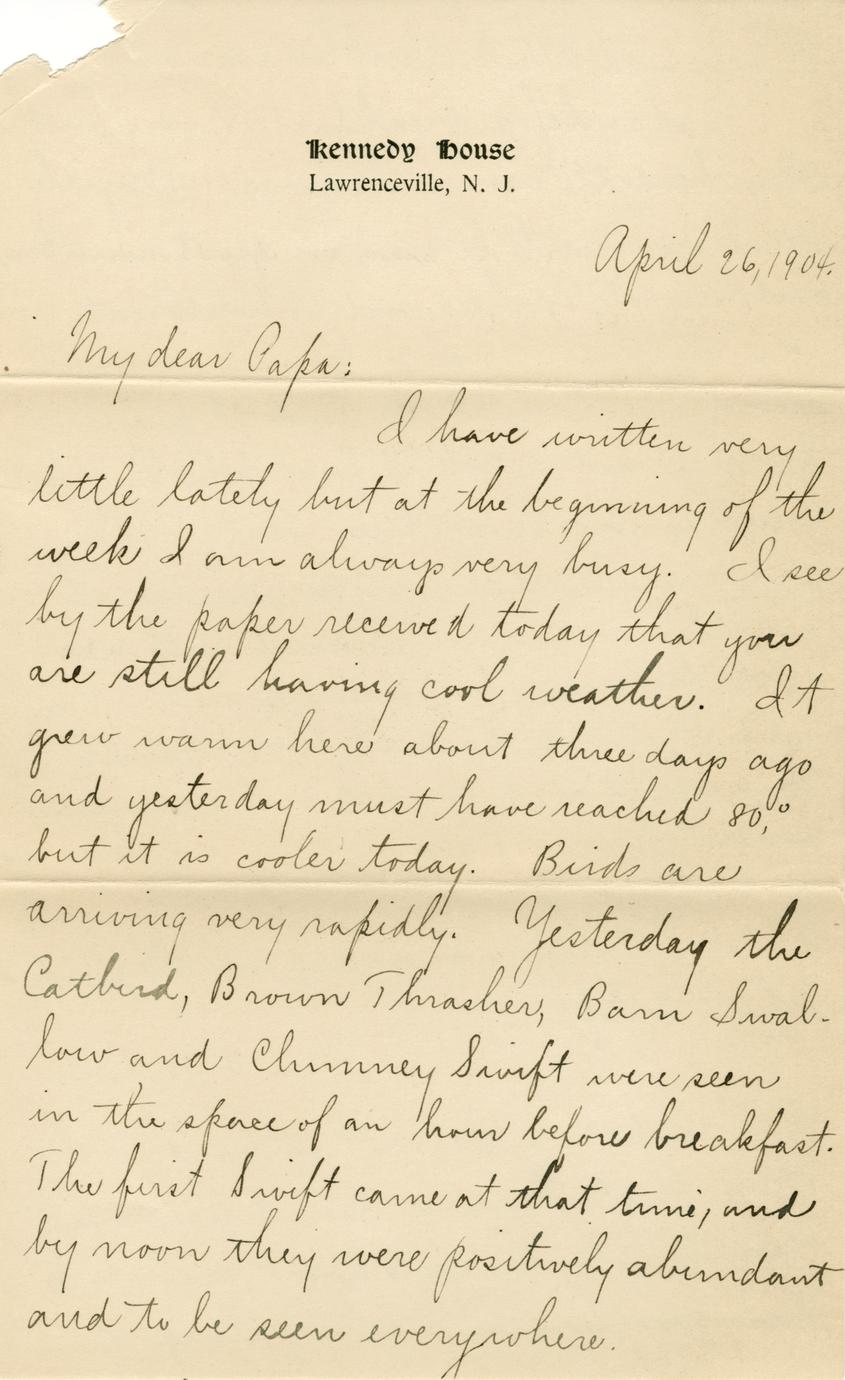 Kennedy House
Lawrenceville, N. J.
April 26, 1904.
My dear Papa:
I have written very
little lately but at the beginning of the
week I am always very busy. I see
by the paper received today that you
are still having cool weather. It
grew warm here about three days ago
and yesterday must have reached 80,°
but it is cooler today. Birds are
arriving very rapidly. Yesterday the
Catbird, Brown Thrasher, Barn Swal-
low and Chimney Swift were seen
in the space of an hour before breakfast.
The first Swift came at that time, and
by noon they were positively abundant
and to be seen everywhere.